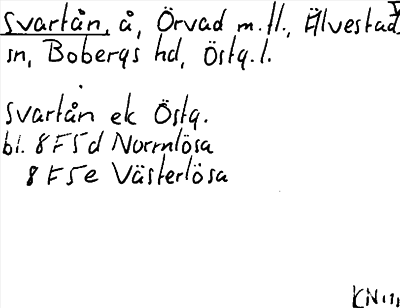 Svartån, å, Örvad m.fl., Älvestad
sn, Bobergs hd, Östg.l.
Svartån ek Östg.
bl. 8F5d Normlösa
8F5e Västerlösa